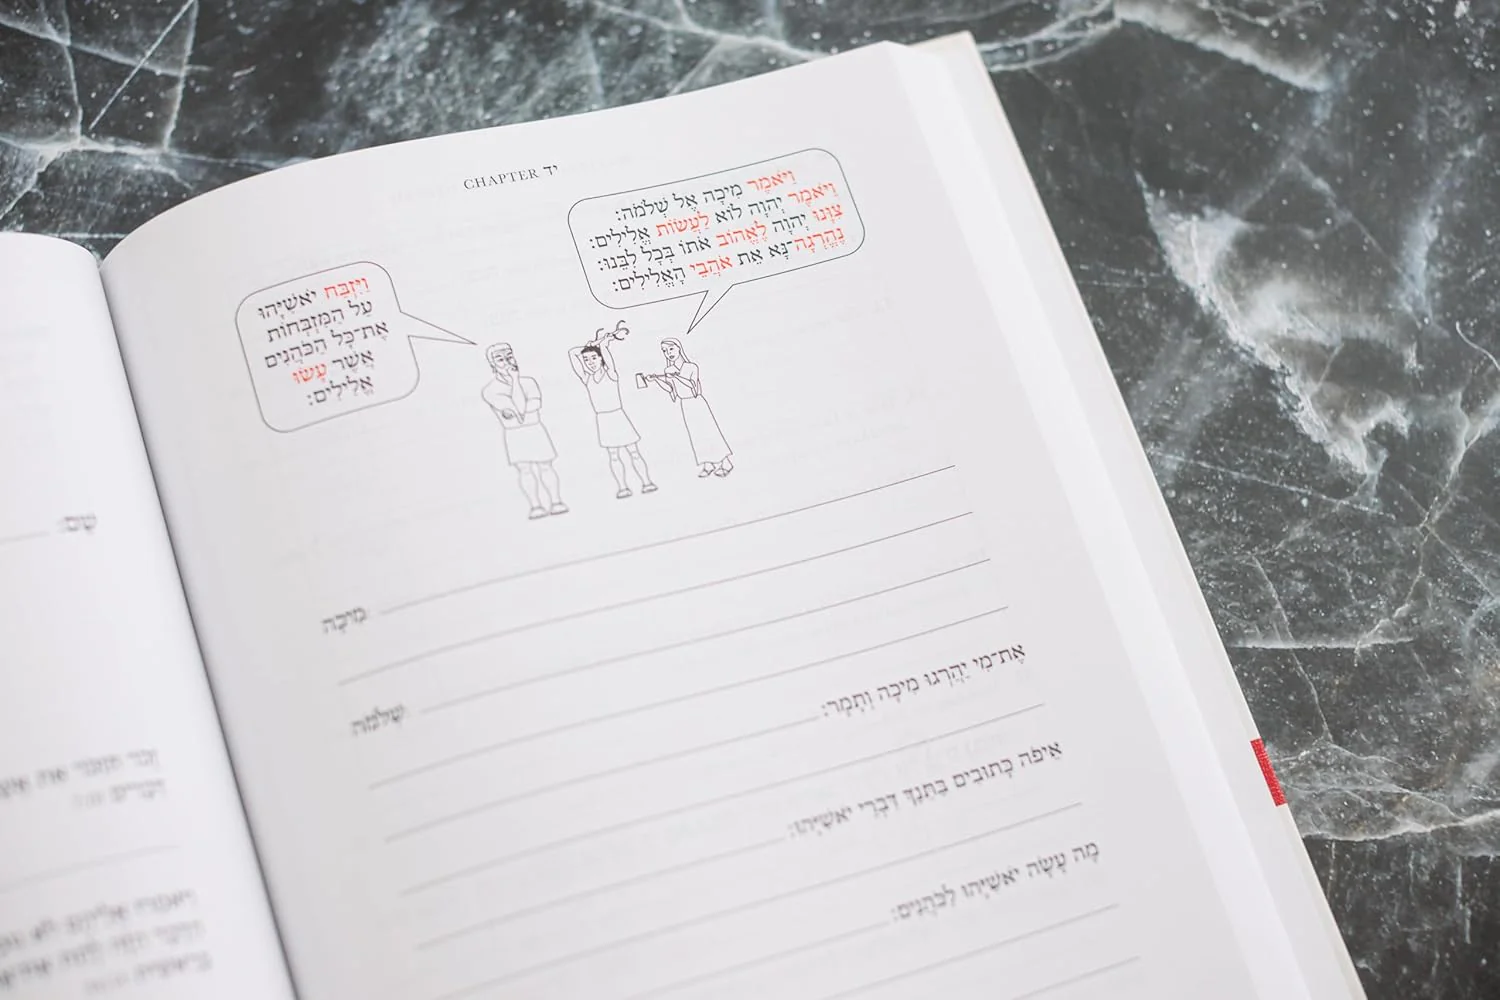 CHAPTER יד
וַיֹּאמֶר מִיכָה אֶל שְׁלֹמֹה:
וַיֹּאמֶר יְהוָה לוֹא לַעֲשׂוֹת אֱלִילִים:
צִוָּנוּ יְהוָה לֶאֱהוֹב אֹתוֹ בְּכָל לִבֵּנוּ:
נַהַרְגָה־נָּא אֵת אֹהֲבֵי הָאֱלִילִים:
וַיִּזְבַּח יֹאשִׁיָּהוּ
עַל הַמִּזְבְּחוֹת
אֶת־כָּל הַכֹּהֲנִים
אֲשֶׁר עָשׂוּ
אֱלִילִים:
מִיכָה
שְׁלֹמֹה
אֶת־מִי יַהַרְגוּ מִיכָה וְתָמָר:
אֵיפֹה כָּתוּבִים בַּתַּנַךְ דִּבְרֵי יֹאשִׁיָּהוּ:
מָה עָשָׂה יֹאשִׁיָּהוּ לַכֹּהֲנִים:
שֵׁם: